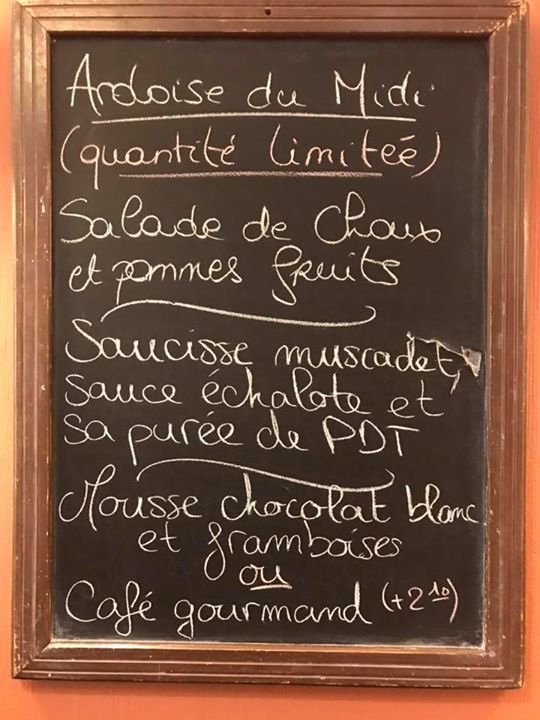 Ardoise du Midi
(quantité limiteé)
Salade de Choux
et pommes fruits
Saucisse muscadet,
sauce échalote et
sa purée de PDT
Mousse chocolat blanc
et framboises
ou
Café gourmand (+2 10)